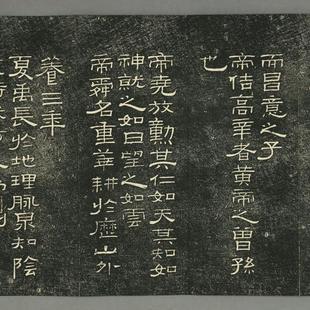 而昌意之子
帝佶高辛者黃帝之曾孫
也
帝堯放勳其仁如天其知如
神就之如日望之如雲
帝舜名重華耕於歷山外
養三年
夏禹長於地理脉泉知陰